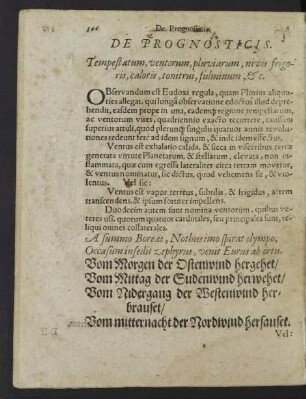 De Prognosticis
DE PROGNOSTICIS.
Tempestatum, ventorum, pluviarum, nivis frigo-
ris, caloris, tonitrui, fulminum, &c.
OBservandum est Eudoxi regula, quam Plinius aliquo-
ties allegat, qui longâ observatione edoctus illud depre-
hendit, easdem prope in una, eademq; regione tempestatum,
ac ventorum vires, quadriennio exacto recurrere, causam
superius attuli, quod plerunq; singulis quatuor annis revolu-
tiones redeunt ferè ad idem signum, & inde idem effectus.
Ventus est exhalatio calida, & sicca in visceribus terræ
generata virtute Planetarum, & stellarum, elevata, non in-
flammata, quæ cum egressa lateraliter circa terram movetur,
& ventus nominatur, sic dictus, quod vehemens sit, & vio-
lentus. Vel sic:
Ventus est vapor terreus, subtilis, & frigidus, aërem
transcendens, & ipsum fortiter impellens.
Duodecim autem sunt nomina ventorum, quibus ve-
teres usi, quorum quatuor cardinales, seu principales sunt, re-
liqui omnes collaterales.
A summo Boreas, Nothus imo spirat olympo,
Occasum insedit zephyrus, venit Eurus ab ortu.
Vom Morgen der Ostenwind hergehet/
Vom Mittag der Sudenwind herwehet/
Vom Nidergang der Westenwind her-
brauset/
Vom mitternacht der Nordwind hersauset.
Vel: